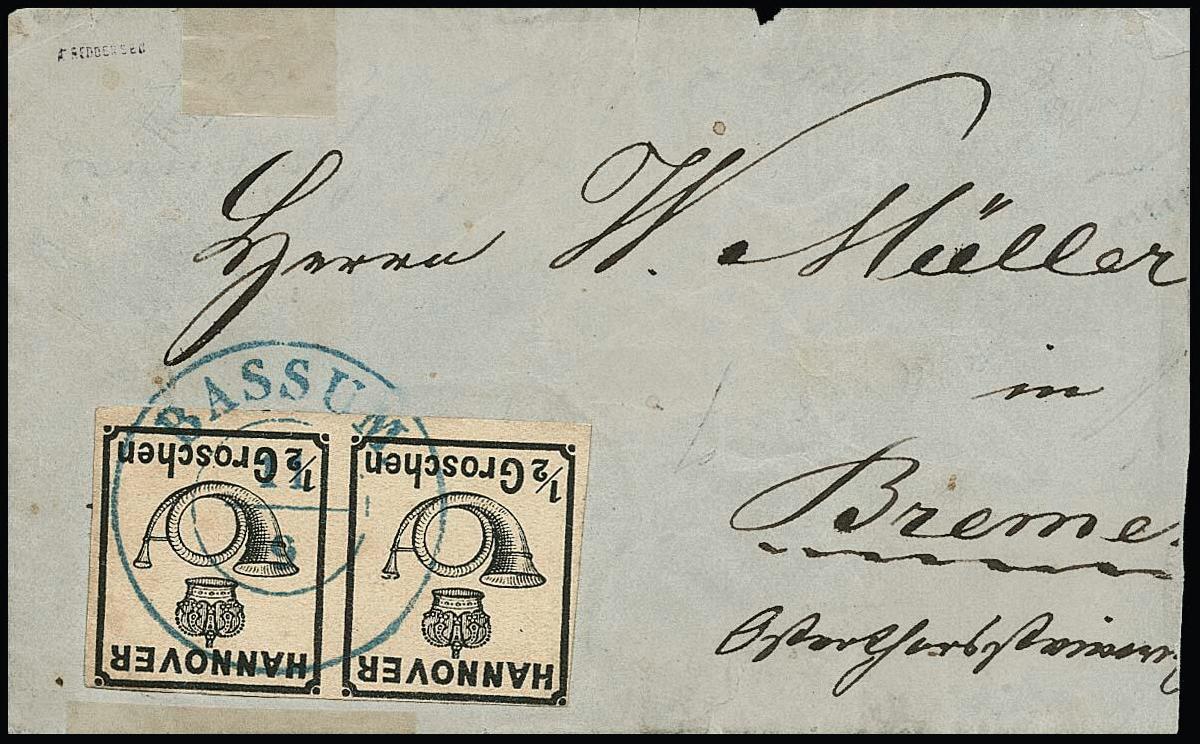 Herrn W. Müller
in
Breme
BASSUM
11
8
1/2 Groschen
HANNOVER
1/2 Groschen
HANNOVER